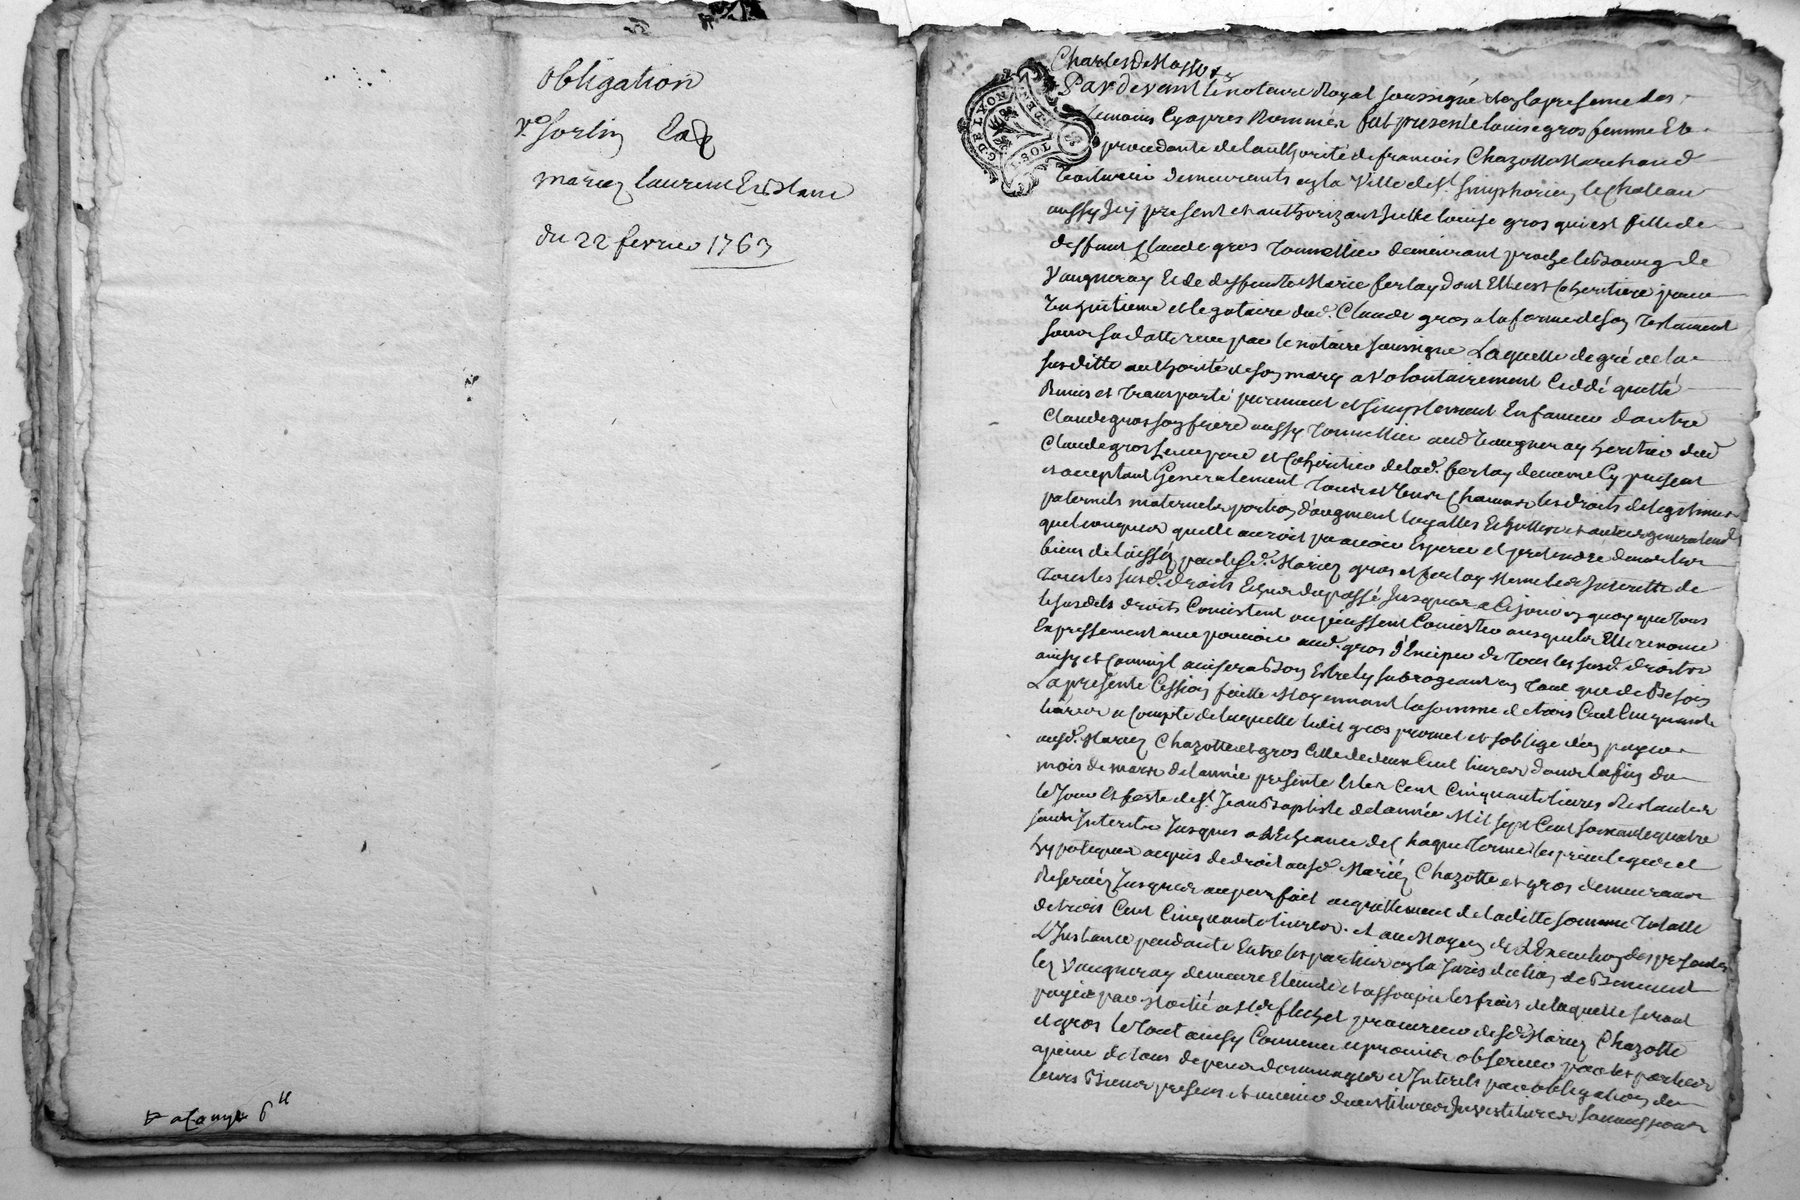 obligation
mariez laurent
du 22 fevrier 1763
a Compte 6 ll
G. DE LYON
Par devant le notaire Royal soussigné et en la presence des
temoins Cy apres Nommez fut presente louise gros femme Et
procedante de l'authorité de francois Chazotte Marchand
demeurants en la Ville de St. simphorien le chateau
aussy icy present et authorizant laditte louise gros qui est fille de
deffunt Claude gros Tonnellier demeurant proche le Bourg de
Vaugneray Et de deffunte Marie ferlay dont Elle est Coheritiere pour
un huitieme et legataire dud. Claude gros a la forme de son Testament
sous sa datte receu par le notaire soussigné Laquelle de gré de la
susditte authorité de son mary a Volontairement Ceddé quitté
Remis et transporté purement et simplement En faveur d'autre
Claude gros son frere aussy Tonnellier aud. Vaugneray heritier dud.
Claude gros leur pere et Coheritier de lad. ferlay leur mere Cy present
et acceptant Generalement Tous et Uns Chacuns les droits de legitime
paternels maternels portion d'augment et autres generalement
quelconques quelle auroit pu avoir Esperer et pretendre dans les
biens delaissez par lesd. Mariez gros et ferlay Meme les Interets de
Tous les susd. droits Echus du passé Jusques a Ce jour en quoy que tous
lesusdits droits Consistent ou puissent Consister ausquels Elle renonce
Expressement avec pouvoir aud. gros d'Exciper de Tous les susd. droits
ainsy et Comme il avisera Bon Estre ly subrogeant en Tout que de Besoin
La presente Cession faitte Moyennant la somme de trois Cent Cinquante
livres a Compte de laquelle ledit gros promet et s'oblige d'en payer
ausd. Mariez Chazotte et gros Celle de deux Cent livres dans la fin du
mois de mars de l'année presente Et les Cent Cinquante livres Restantes
le Jour Et feste de St. Jean Baptiste de l'année Mil sept Cent soixante quatre
sans Interets Jusques a l'Echeance de Chaque Terme les privileges et
hypoteques acquis de droit ausd. Mariez Chazotte et gros demeurants
Reservez Jusques au parfait acquittement de laditte somme Totalle
de trois Cent Cinquante livres. et au Moyen de L'Execution des presentes
L'Instance pendante Entre les parties en la Jurisdiction de
Vaugneray demeure Eteinte et assoupie les frais de laquelle seront
payés par Moitié a Me. procureur desd. Mariez Chazotte
et gros le Tout ainsy Convenu et promis observer par les parties
a peine de tous depens dommages et Interets par obligation de
leurs Biens presens et avenir